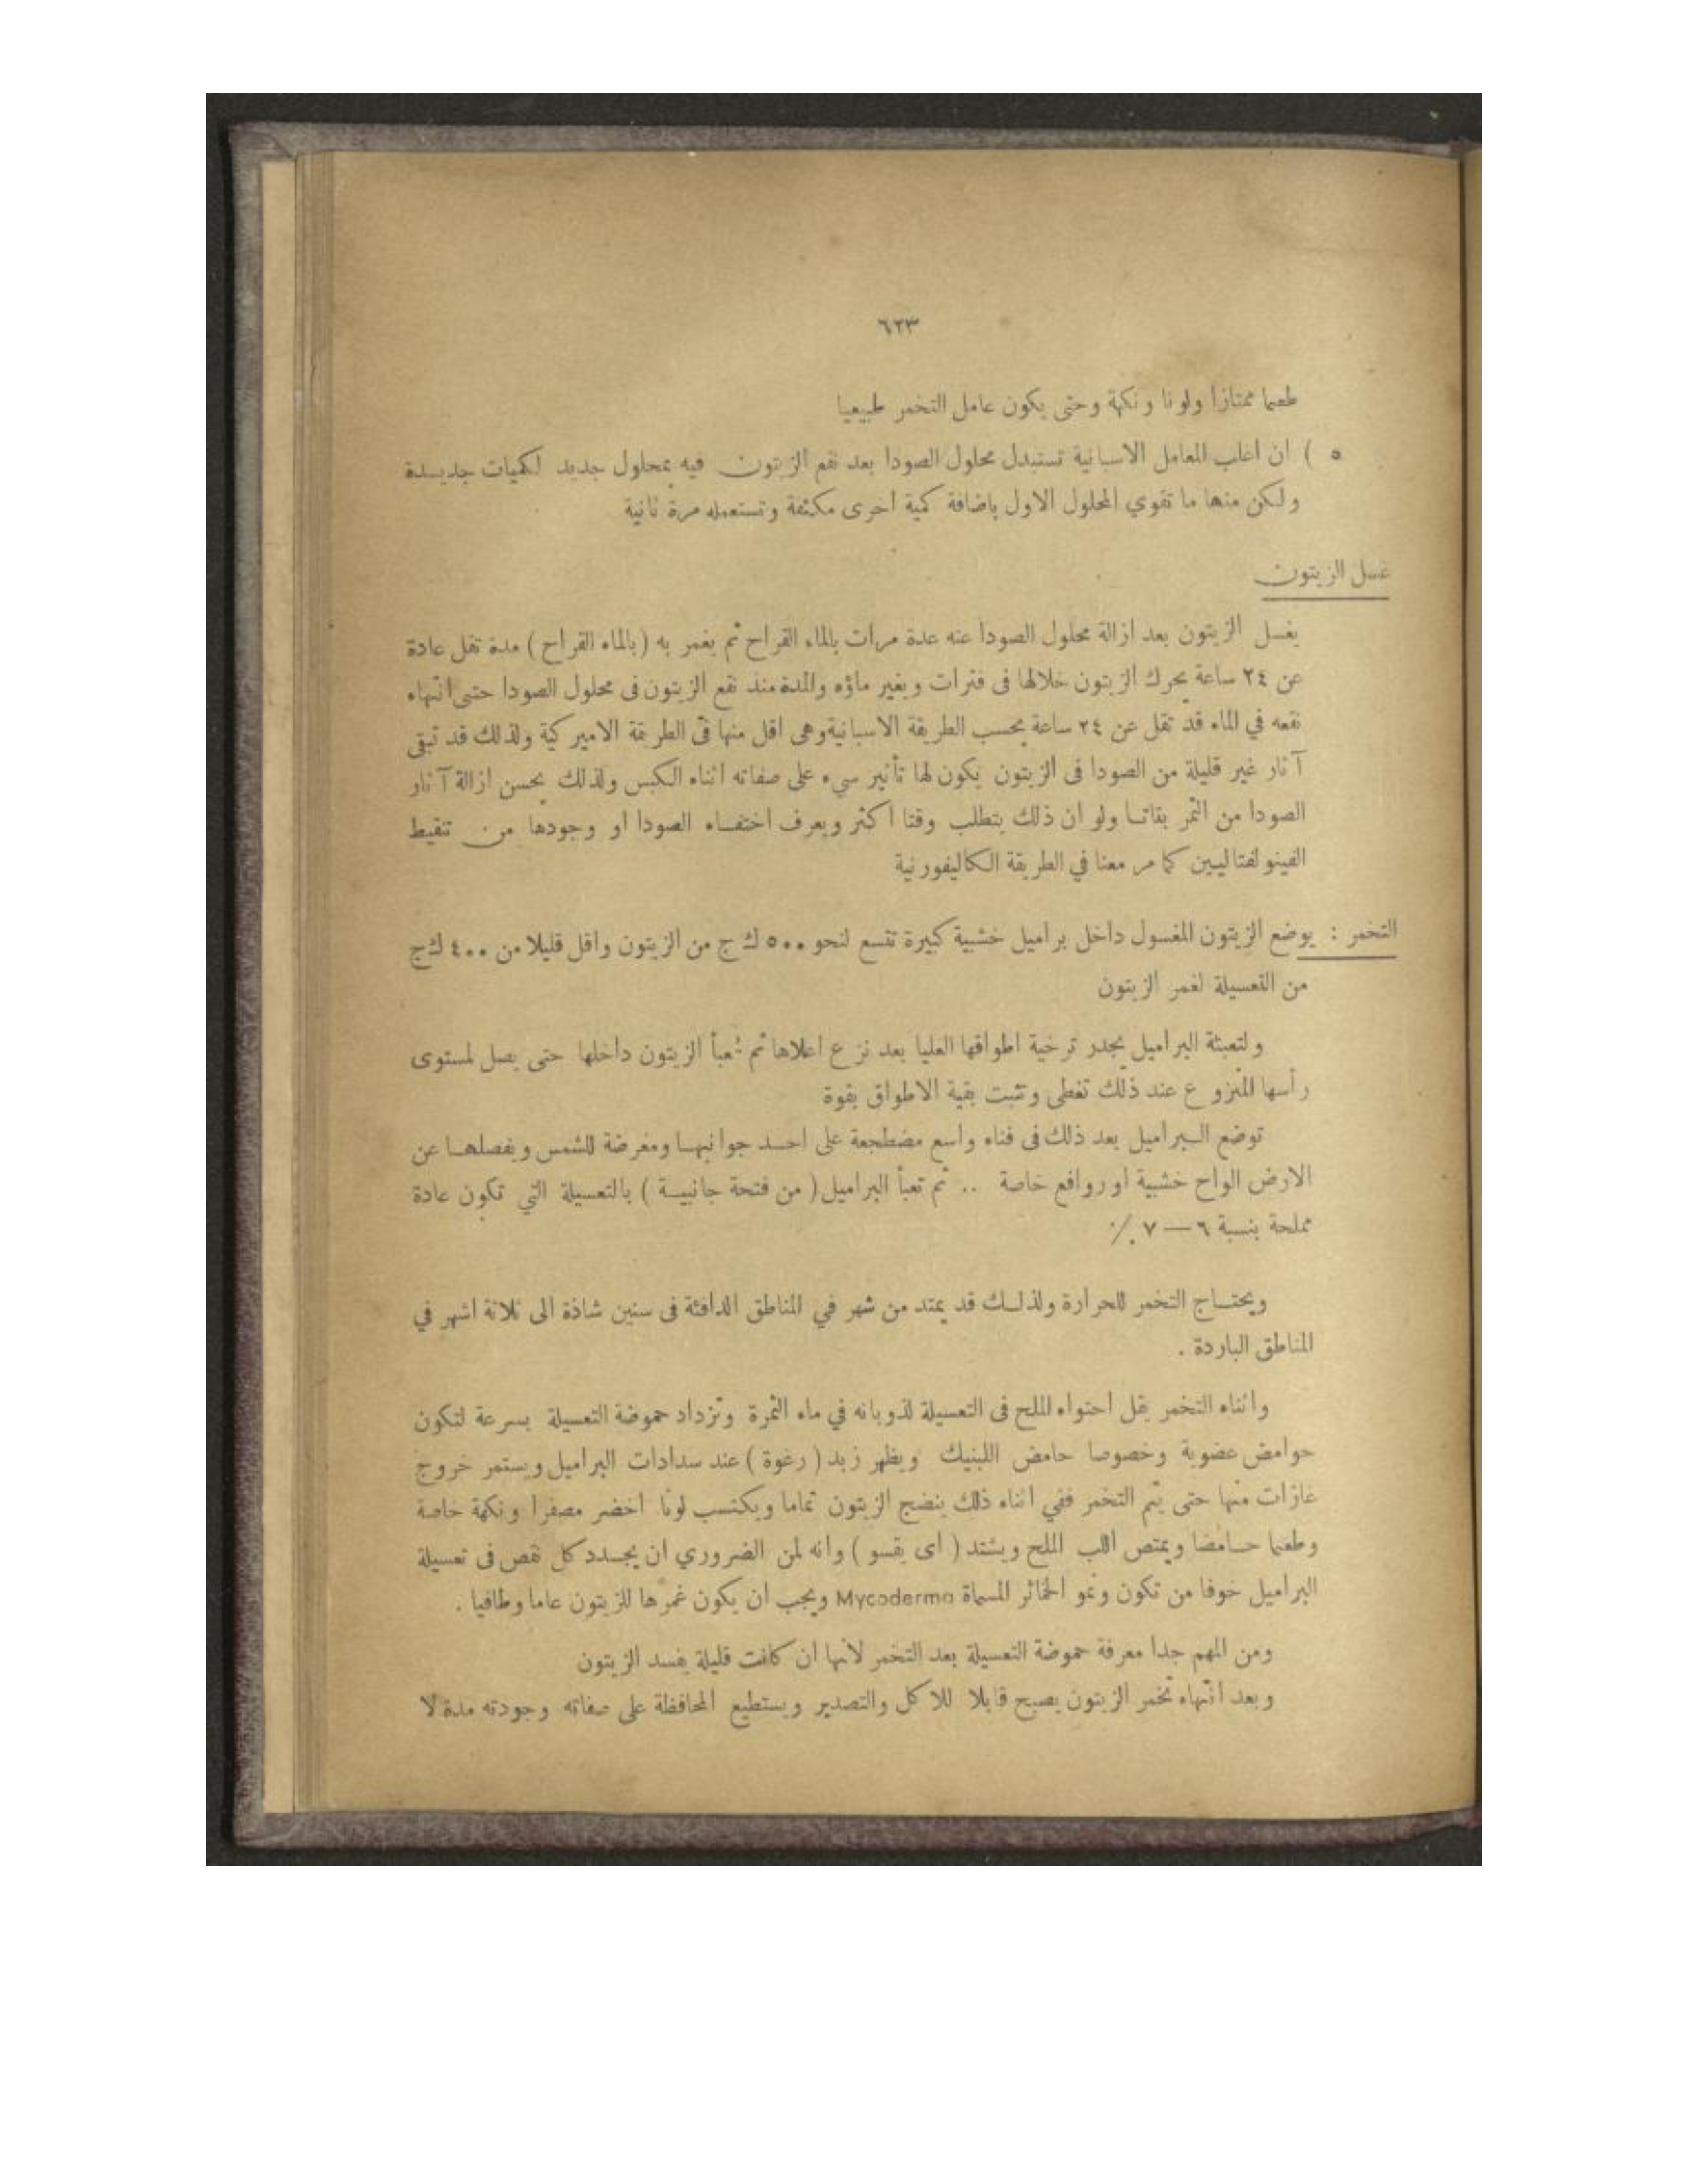 ٦٢٣
طعما ممتازا ولونا ونكهة وحتى يكون عامل التخمر طبيعيا
٥ ) ان اغلب المعامل الاسبانية تستبدل محلول الصودا بعد نقع الزيتون فيه بمحلول جديد لكميات جديدة
ولكن منها ما تقوي المحلول الاول باضافة كمية اخرى مكثفة وتستعمله مرة ثانية
غسل الزيتون
يغسل الزيتون بعد ازالة محلول الصودا عنه عدة مرات بالماء القراح ثم يغمر به ( بالماء القراح ) مدة تقل عادة
عن ٢٤ ساعة يحرك الزيتون خلالها فى فترات ويغير ماؤه والمدة منذ نقع الزيتون فى محلول الصودا حتى انتهاء
نقعه في الماء قد تقل عن ٢٤ ساعة بحسب الطريقة الاسبانية وهى اقل منها فى الطريقة الاميركية ولذلك قد تبقى
آثار غير قليلة من الصودا فى الزيتون يكون لها تأثير سيء على صفاته اثناء الكبس ولذلك يحسن ازالة آثار
الصودا من الثمر بتاتا ولو ان ذلك يتطلب وقتا اكثر ويعرف اختفاء الصودا او وجودها من تنقيط
الفينولفتاليين كما مر معنا في الطريقة الكاليفورنية
التخمر : يوضع الزيتون المغسول داخل براميل خشبية كبيرة تتسع لنحو ٥٠٠ ك ج من الزيتون واقل قليلا من ٤٠٠ ك ج
من التعسيلة لغمر الزيتون
ولتعبئة البراميل يجدر ترخية اطواقها العليا بعد نزع اعلاها ثم تعبأ الزيتون داخلها حتى يصل لمستوى
رأسها المنزوع عند ذلك تغطى وتثبت بقية الاطواق بقوة
توضع البراميل بعد ذلك فى فناء واسع مضطجعة على احد جوانبها ومعرضة للشمس ويفصلها عن
الارض الواح خشبية او روافع خاصة .. ثم تعبأ البراميل ( من فتحة جانبية ) بالتعسيلة التي تكون عادة
مملحة بنسبة ٦ — ٧ ٪
ويحتاج التخمر للحرارة ولذلك قد يمتد من شهر في المناطق الدافئة فى سنين شاذة الى ثلاثة اشهر في
المناطق الباردة .
واثناء التخمر يقل احتواء الملح فى التعسيلة لذوبانه في ماء الثمرة وتزداد حموضة التعسيلة بسرعة لتكون
حوامض عضوية وخصوصا حامض اللبنيك ويظهر زبد ( رغوة ) عند سدادات البراميل ويستمر خروج
غازات منها حتى يتم التخمر ففي اثناء ذلك ينضج الزيتون تماما ويكتسب لونا اخضر مصفرا ونكهة خاصة
وطعما حامضا ويمتص اللب الملح ويشتد ( اى يقسو ) وانه لمن الضروري ان يجدد كل نقص فى تعسيلة
البراميل خوفا من تكون ونمو الخمائر المسماة Mycoderma ويجب ان يكون غمرها للزيتون عاما وطافيا .
ومن المهم جدا معرفة حموضة التعسيلة بعد التخمر لانها ان كانت قليلة يفسد الزيتون
وبعد انتهاء تخمر الزيتون يصبح قابلا للاكل والتصدير ويستطيع المحافظة على صفاته وجودته مدة لا